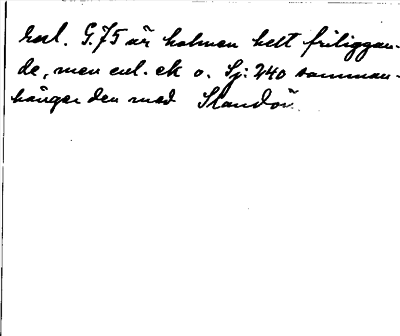 Enl. G.75 är holmen helt friliggan-
de, men enl. ek o. Sj: 240 samman-
hänger den med Standör.